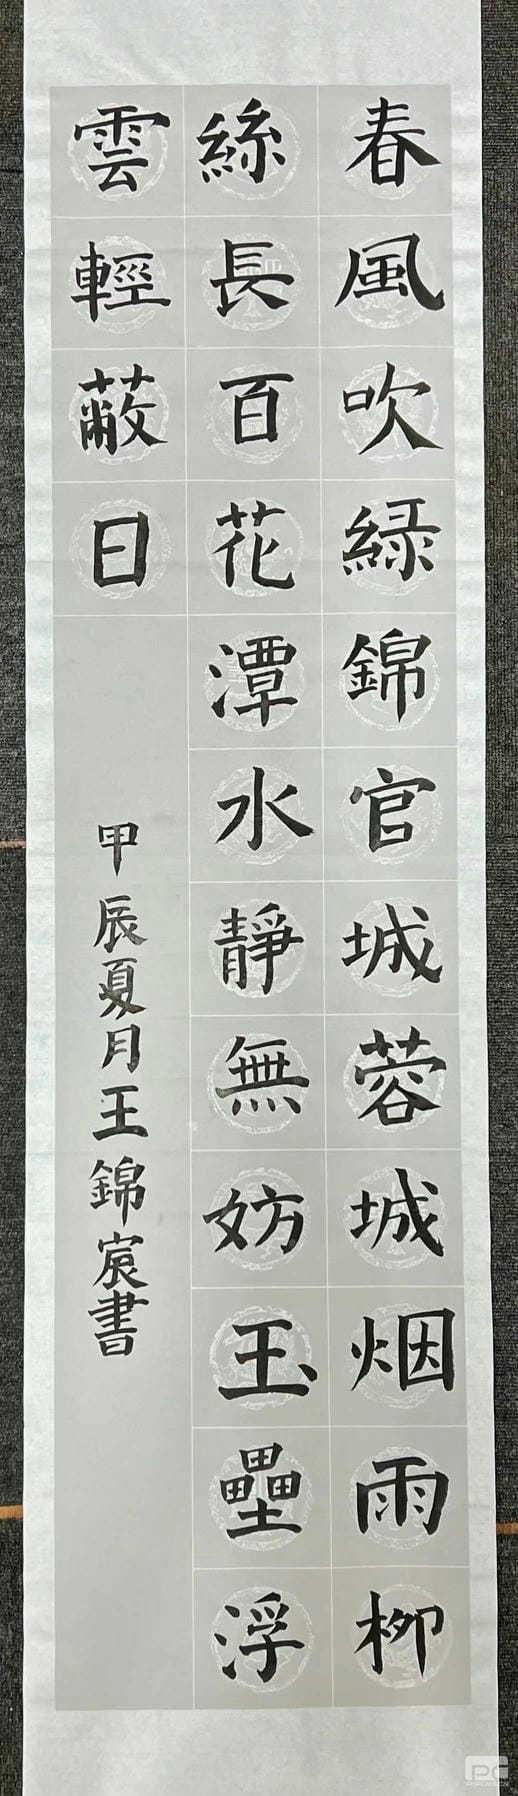 春風吹緑錦官城蓉城烟雨柳
絲長百花潭水靜無妨玉壘浮
雲輕蔽日
甲辰夏月王錦宸書
PC
PHPCMS.CN